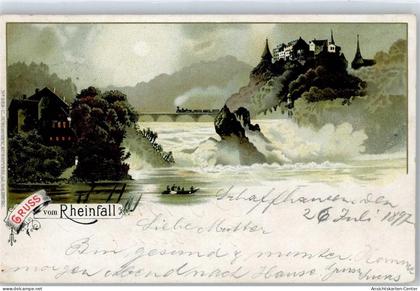 GRUSS
vom Rheinfall
Schaffhausen, den
26 Juli 1897
Liebe Mutter
Bin gesund & munter. Komme
morgen Abend nach Hause. Gruss
Ansichtskarten-Center